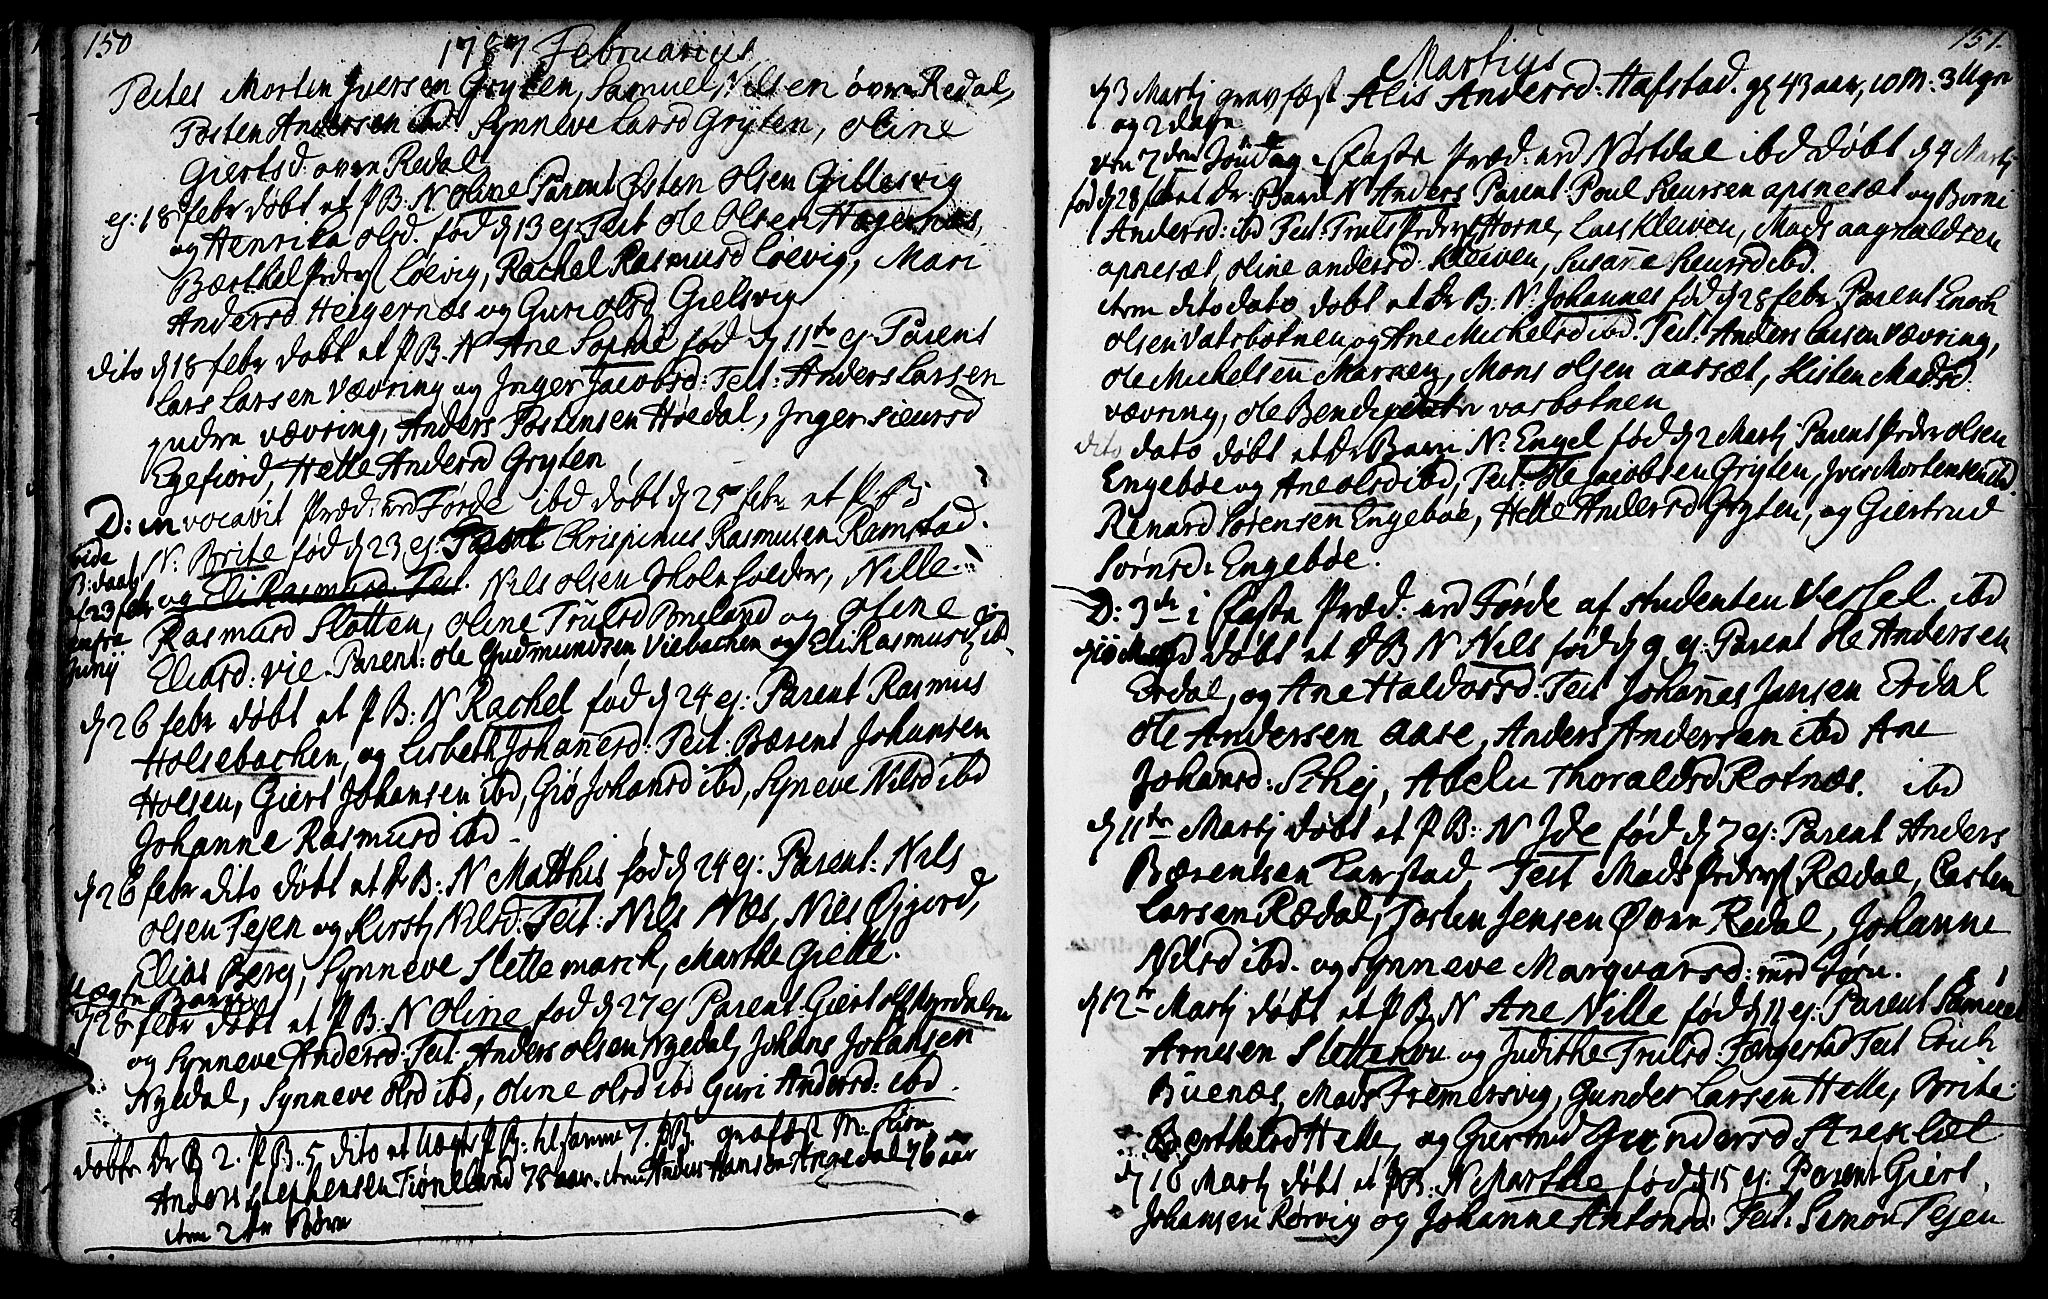 150
1787 Februarius
Testes Morten Iversen Gryten, Samuel Nilsen øvre Redal,
Tosten Andersen ibd Synneve Larsd Gryten, Oline
Giertsd: øvre Redal
ej: 18 febr døbt et P B. N. Oline Parent Østen Olsen Gillesvig
og Henrika Olsd. fød d 13 ej Test Ole Olsen Hegernæs,
Bærthel Løevig, Rachel Rasmusd Løevig, Mari
Andersd Heigernæs og Guri Olsd Gielsvig
dito d 18 febr døbt et P B. N Ane Sophie fød d 11te ej. Parent
Lars Larsen Vævring og Inger Jacobsd: Test: Anders Larsen
yndre vævring, Anders Tostensen Høedal, Inger Sieursd
Egefiord, Helle Andersd Gryten
D: invocavit Præd: ved Førde ibd døbt d 25 febr et P: B:
N: Brite fød d 23 ej: Parent Chrispinus Rasmusen Ramstad.
og Eli Rasmusd. Test. Nils Olsen Holefolden, Nille
Rasmusd Slotten, Oline Trulsd Brieland og Oline
Eliasd: vie. Parent: Ole Gudmundsen Viebachen og Eli Rasmusd ibd
d 26 febr døbt et P B: N Rachel fød d 24 ej: Parent Rasmus
Holsebachen, og Lisbeth Johannesd: Test: Bærent Johansen
Holsen, Giert Johansen ibd, Giø Johansd ibd, Synneve Nilsd ibd
Johanne Rasmusd ibd
d 26 febr dito døbt et P B: N Matthis fød d 24 ej: Parent: Nils
Olsen Tefen og Kirstj Nilsd: Test: Nils Næs, Nils Øjjord,
Elias Berg, Synneve Slettemarck, Marthe Gielle.
Uægte Barn
d 28 febr døbt et P B: N Oline fød d 27 ej Parent: Giert
og Synneve Andersd: Test: Anders Olsen Nyedal, Johans Johansen
Nyedal, Synneve Olsd ibd, Oline Olsd ibd Guri Andersd: ibd.
døbte Dr B 2. P B. 5 dito et Uægte P B: tilsamme 7. P B. gravfæst
Anders Stephensen Tiøneland 78 aar. item Anders Hansen Angedal 76 aar
item 2 Børn
151.
Martius
d 3 Martj gravfæst Alis Andersd: Hafstad. g 43 aar, 10 M: 3 Uger
og 2 dage
Søndag i Faste Præd: ved Nøstdal ibd døbt d 4 Martj
fød d 28 febr et Dr: Barn N Anders Parent: Poul Seursen apnesæt og Borni
Andersd: ibd Test: Truls Horne, Lars Kleiven, Mads aagnaldsen
apnesæt, Oline andersd Kleiven, Susanne Seursd ibd.
item dito dato døbt et Dr B. N. Johannes fød d 28 febr Parent Enoch
Olsen Vatsbotnen og Ane Michelsd ibd. Test: Anders Larsen Vævring,
Ole Michelsen Maraen, Mons Olsen aarsæt, Kisten Madsd
vævring, Ole vasbotnen
dito dato døbt et Dr Barn N: Engel fød d 2 Martj Parent Peder Olsen
Engebøe og Ane Olsd ibd, Test: Ole Jacobsen Gryten, Iver Mortensen ibd.
Renard Sørensen Engebøe, Helle Andersd Gryten, og Giertrud
Sørnsd: Engebøe.
D: 3de i Faste Præd: ved Førde af Studenten Vessel. ibd
døbt et P B N Nils fød d 9 ej: Parent Ole Andersen
Erdal, og Ane Haldorsd: Test Johannes Jansen Erdal
Ole Andersen aase, Anders Andersen ibd Ane
Johansd: Schej, Abelu Thoraldsd Rotnæs. ibd
d 11te Martj døbt et P B: N Ide fød d 7 ej: Parent Anders
Bærentsen Lanstad, Test Mads Rædal, Casten
Larsen Rædal, Tosten Jensen Øvre Redal, Johanne
Nilsd ibd. og Synneve Marqvarsd: ned Jøsn.
d 12te Martj døbt et P B N Ane Nille fød d 11 ej: Parent Samuel
Arnesen Slettenou og Judithe Trulsd: Færgestad Test Erich
Buenæs, Mads Fremersvig, Gunder Larsen Helle, Brite
Bærthelsd Helle, og Giertrud Gundersd
d 16 Martj døbt et P B: N Marthe fød d 15 ej Parent Giert
Johansen Rørvig og Johanne Antonsd: Test: Simon Tefen